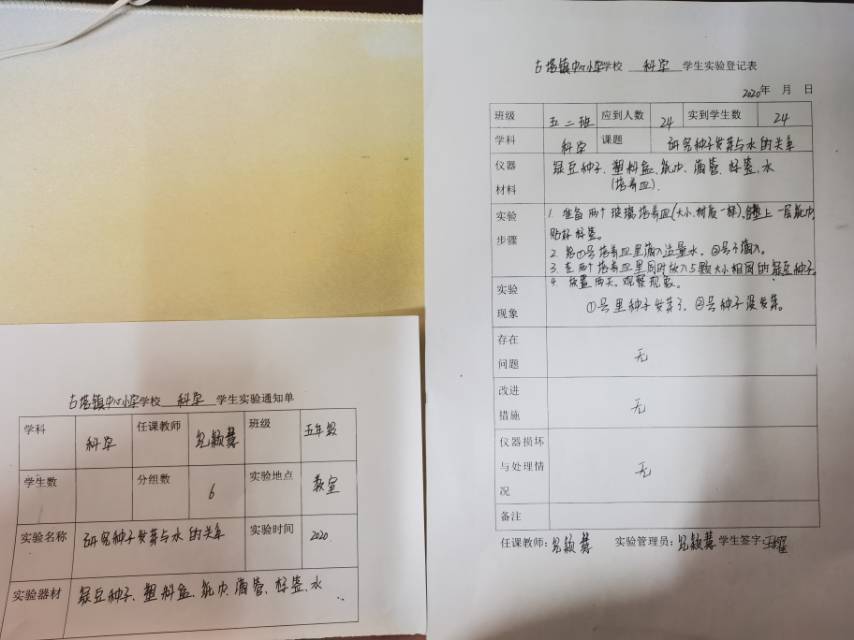 古塔镇中心小学学校 科学 学生实验通知单
学科 科学 任课教师 班级 五年级
学生数 分组数 6 实验地点 教室
实验名称 研究种子发芽与水的关系 实验时间 2020
实验器材 绿豆种子、塑料盒、纸巾、滴管、标签、水
古塔镇中心小学学校 科学 学生实验登记表
2020年 月 日
班级 五二班 应到人数 24 实到学生数 24
学科 科学 课题 研究种子发芽与水的关系
仪器材料 绿豆种子、塑料盒、纸巾、滴管、标签、水
(培养皿).
实验步骤 1. 准备两个玻璃培养皿(大小、材质一样),垫上一层纸巾,
贴好标签。
2. 给①号培养皿里滴入适量水,②号不滴入。
3. 在两个培养皿里同时放入5颗大小相同的绿豆种子
4. 放置两天,观察现象。
实验现象 ①号里种子发芽了,②号种子没发芽。
存在问题 无
改进措施 无
仪器损坏与处理情况 无
备注
任课教师: 实验管理员: 学生签字: